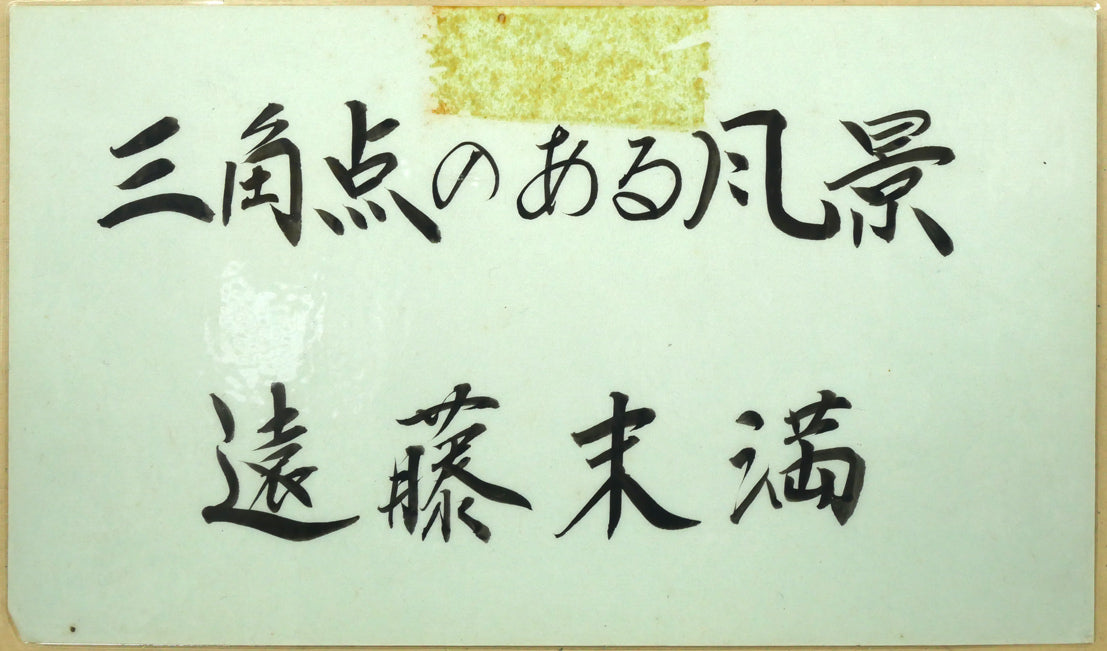 三角点のある風景
遠藤末満